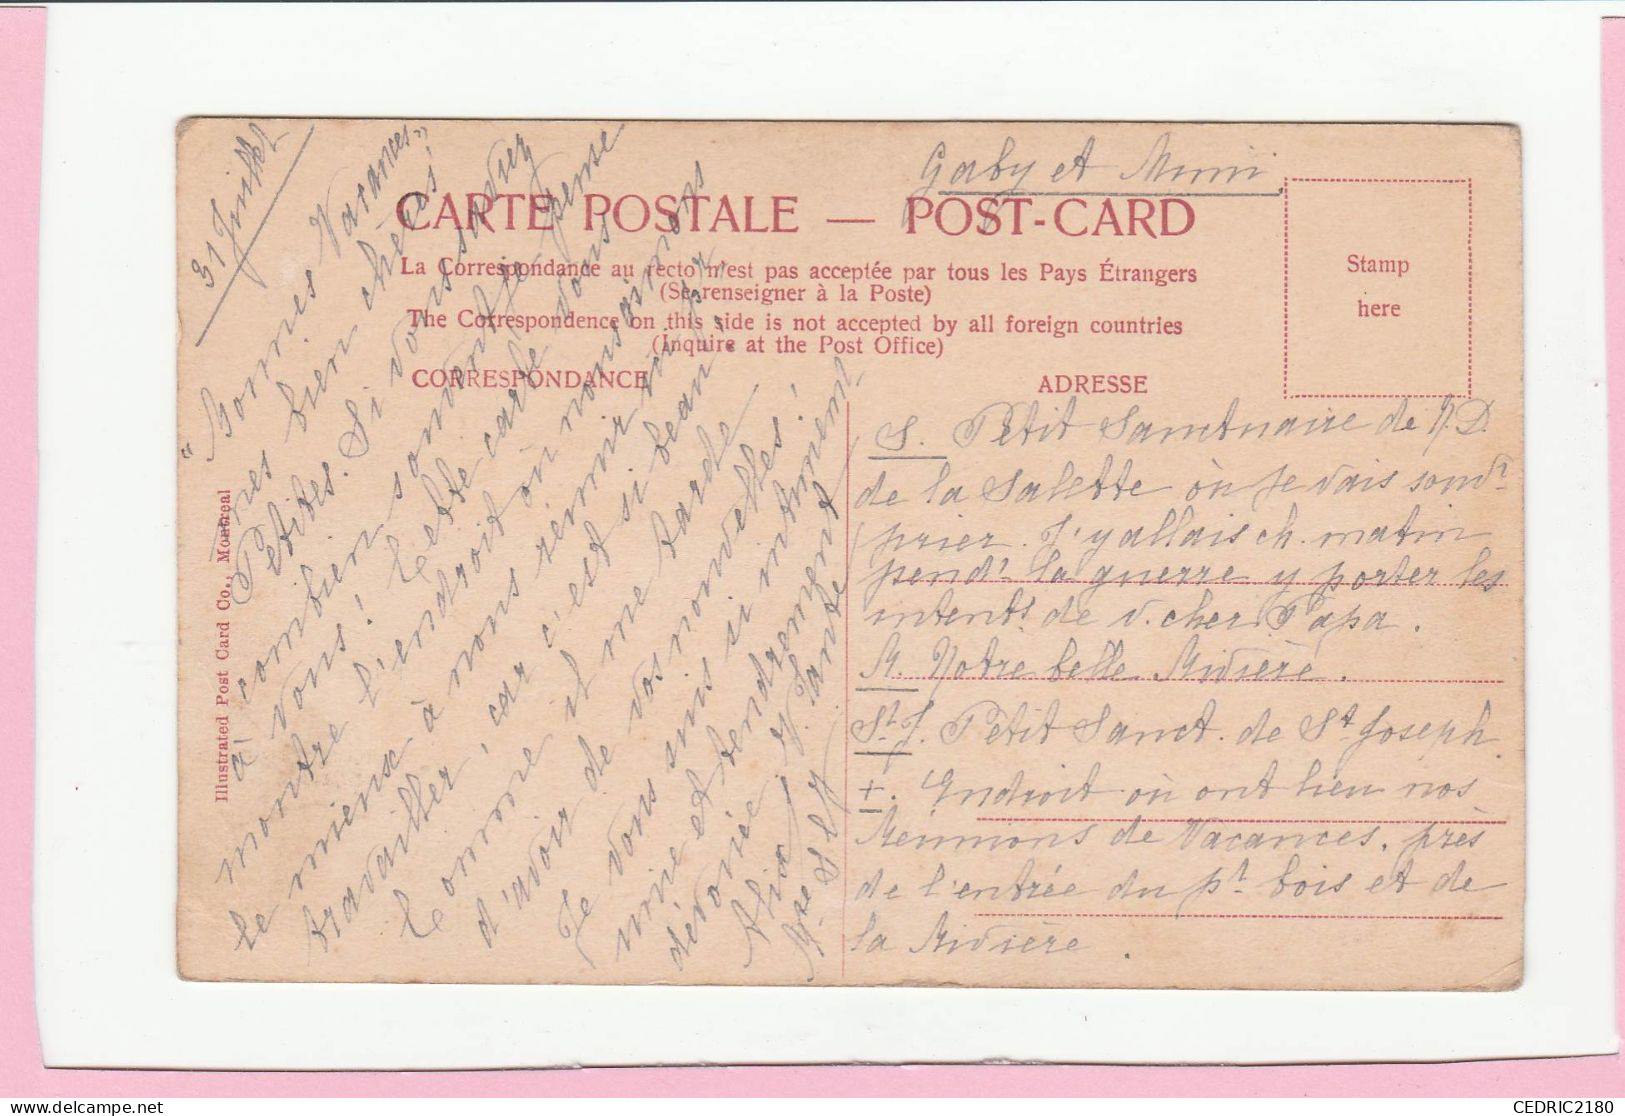 Gaby et Mimi
CARTE POSTALE — POST-CARD
La Correspondance au recto n'est pas acceptée par tous les Pays Étrangers
(Se renseigner à la Poste)
The Correspondence on this side is not accepted by all foreign countries
(Inquire at the Post Office)
CORRESPONDANCE
ADRESSE
Stamp
here
Illustrated Post Card Co., Montreal
31 Juillet
"Bonnes Vacances"
mes bien chères
Petites. Si vous saviez
combien souvent je pense
à vous! Cette carte vous
montre l'endroit où nous aimons
le mieux à nous réunir
travailler, car c'est si beau.
Comme il me tarde
d'avoir de vos nouvelles!
Je vous suis si intimement
unie et tendrement
dévouée V. Tante
S. Petit Sanctuaire de N.D.
de la Salette où je vais souvt
prier. J'y allais ch. matin
pendt la guerre y porter les
intents de v. cher Papa.
R. Notre belle Rivière.
St J. Petit Sanct. de St Joseph
+. Endroit où ont lieu nos
Réunions de Vacances, près
de l'entrée du pt bois et de
la Rivière.
CEDRIC2180